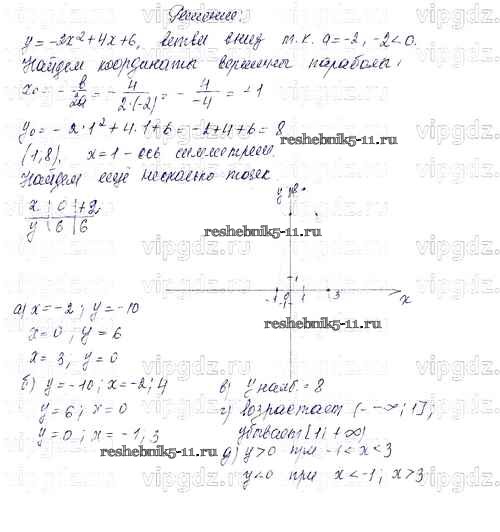 Решение:
y = -2x² + 4x + 6, ветви вниз т.к. a = -2, -2 < 0.
Найдем координаты вершины параболы:
x₀ = - b/2a = - 4/2·(-2) = - 4/-4 = +1
y₀ = - 2·1² + 4·1 + 6 = -2 + 4 + 6 = 8
(1,8), x = 1 - ось симметрии.
reshebnik5-11.ru
Найдем ещё несколько точек
x | 0 | +2
y | 6 | 6
y 8
reshebnik5-11.ru
1
-1 0 1 3 x
reshebnik5-11.ru
а) x = -2; y = -10
x = 0; y = 6
x = 3; y = 0
б) y = -10; x = -2; 4
y = 6; x = 0
y = 0; x = -1; 3
в) y наиб = 8
г) возрастает (-∞; 1];
убывает [1; +∞)
reshebnik5-11.ru
д) y > 0 при -1 < x < 3
y < 0 при x < -1; x > 3
vipgdz.ru